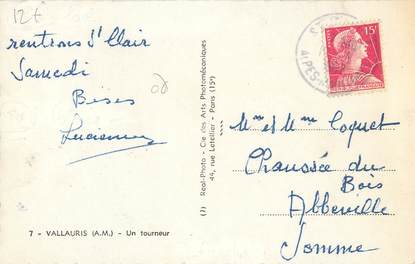 12f
rentrons St Clair
Samedi
Bises
Lucienne
7 - VALLAURIS (A.M.) - Un tourneur
(7) Réal-Photo - Cie des Arts Photomécaniques
44, rue Letellier - Paris (15e)
15f
ALPES
Mme et Mr Coquet
Chaussée du
Bois
Abbeville
Somme